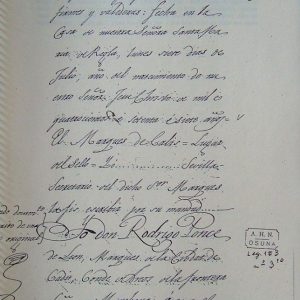 firmeras y valederas: fecha en la
Casa de nuestra Señora Santa Ma
ria de Regla, lunes siete dias de
Julio; año del nascimiento de nu
estro Señor Jesu Christo de mil é
quatrocientos é setenta é siete años
El Marques de Calis = Lugar
del sello = Sevilla
Secretario del dicho Señor Marques
la fis escribir por su mandado
Yo don Rodrigo Ponce
de Leon, Marques de la Cibdad de
Cadiz, Conde de Arcos de la frontera
original
A.H.N.
OSUNA
Leg. 183
nº 3